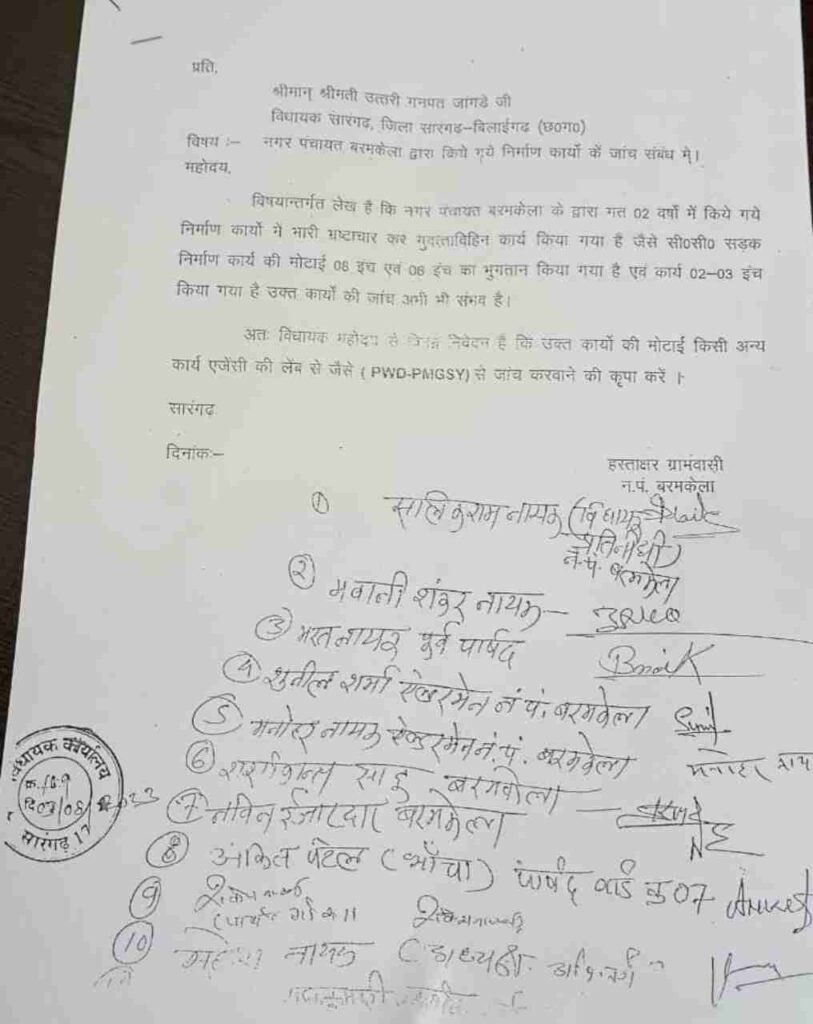 प्रति,
श्रीमान् श्रीमती उत्तरी गनपत जांगडे जी
विधायक सारंगढ, जिला सारगढ–बिलाईगढ (छ0ग0)
विषय :– नगर पंचायत बरमकेला द्वारा किये गये निर्माण कार्यो कें जांच संबंध मे।
महोदय,
विषयान्तर्गत लेख है कि नगर पंचायत बरमकेला के द्वारा गत 02 वर्षो में किये गये
निर्माण कार्यो ने भारी भ्रष्टाचार कर गुवत्ताविहिन कार्य किया गया है जैसे सी0सी0 सड़क
निर्माण कार्य की मोटाई 08 इंच एवं 06 इंच का भुगतान किया गया है एवं कार्य 02–03 इंच
किया गया है उक्त कार्यो की जांच अभी भी संभव है।
अतः विधायक महोदय से विनम्र निवेदन है कि उक्त कार्यो की मोटाई किसी अन्य
कार्य एजेंसी की लेंब से जैसे ( PWD-PMGSY) से जांच करवाने की कृपा करें ।
सारंगढ
दिनांकः–
हस्ताक्षर ग्रामंवासी
न.पं. बरमकेला
1 सालिकुराम नायक (विधायक
प्रतिनीधी)
न.पं. बरमकेला
2 भवानी शंकर नायक –
3 भरत नायक पूर्व पार्षद
4 सुनील शर्मा ऐल्डरमेन नं.पं. बरमकेला
5 मनोहर नायक ऐल्डरमेन नं.पं. बरमकेला मनोहर
6 साहु बरमकेला –
7 नविन ईजारदार बरमकेला
8 अंकित पटेल (भाँचा) पार्षद वार्ड क्रु 07
9
10 नायक
विधायक कार्यालय
सारंगढ़ 17